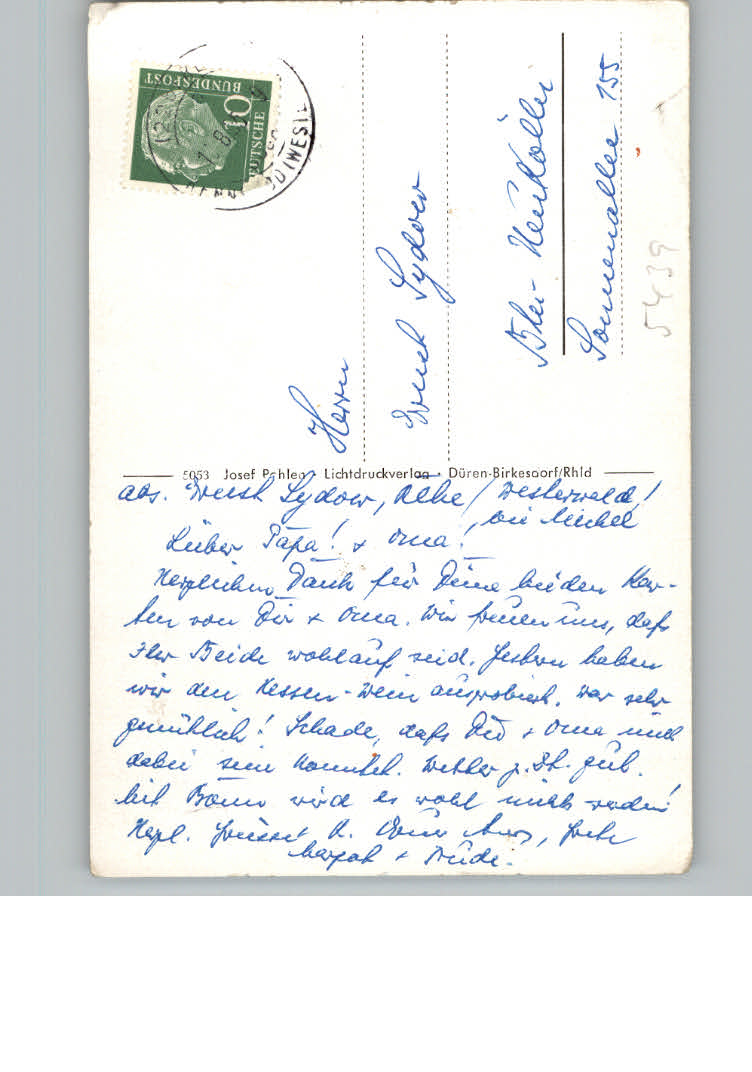 BUNDESPOST
10
DEUTSCHE
Herrn
Erich Sydow
Bln-Neukölln
Sonnenallee 155
5439
5053 Josef Pahlen · Lichtdruckverlag · Düren-Birkesdorf/Rhld
Abs. Erich Sydow, Rehe / Westerwald!
bei Michel
Lieber Papa! + Oma!
Herzlichen Dank für Deine beiden Kar-
ten von Dir + Oma. Wir freuen uns, daß
Ihr Beide wohlauf seid. Gestern haben
wir den Hessen-Wein ausprobiert. War sehr
gemütlich! Schade, daß Du + Oma nicht
dabei sein konntet. Wetter z. Zt. gut.
Mit Bonn wird es wohl nichts werden!
Herzl. Grüsse
+ Trude.